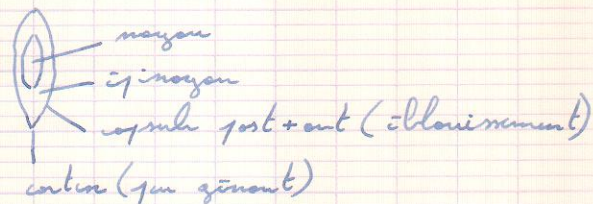 noyau
épinoyau
capsule post + ant (éblouissement)
cortex (peu gênant)